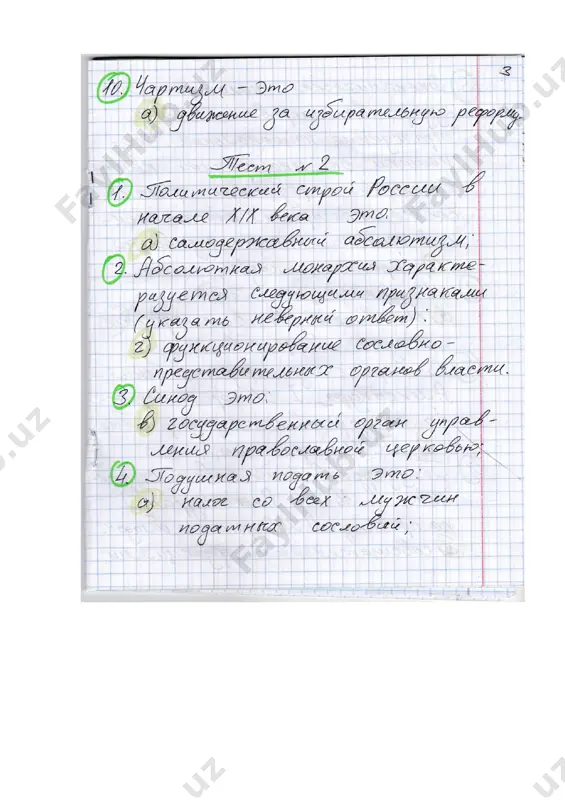 3
10. Чартизм – это
а) движение за избирательную реформу.
Тест №2
1. Политический строй России в
начале XIX века это:
а) самодержавный абсолютизм;
2. Абсолютная монархия характе-
ризуется следующими признаками
(указать неверный ответ):
г) функционирование сословно-
представительных органов власти.
3. Синод это:
в) государственный орган управ-
ления православной церковью;
4. Подушная подать это:
а) налог со всех мужчин
податных сословий;
FaylHub.uz
FaylHub.uz
FaylHub.uz
FaylHub.uz
uz
uz